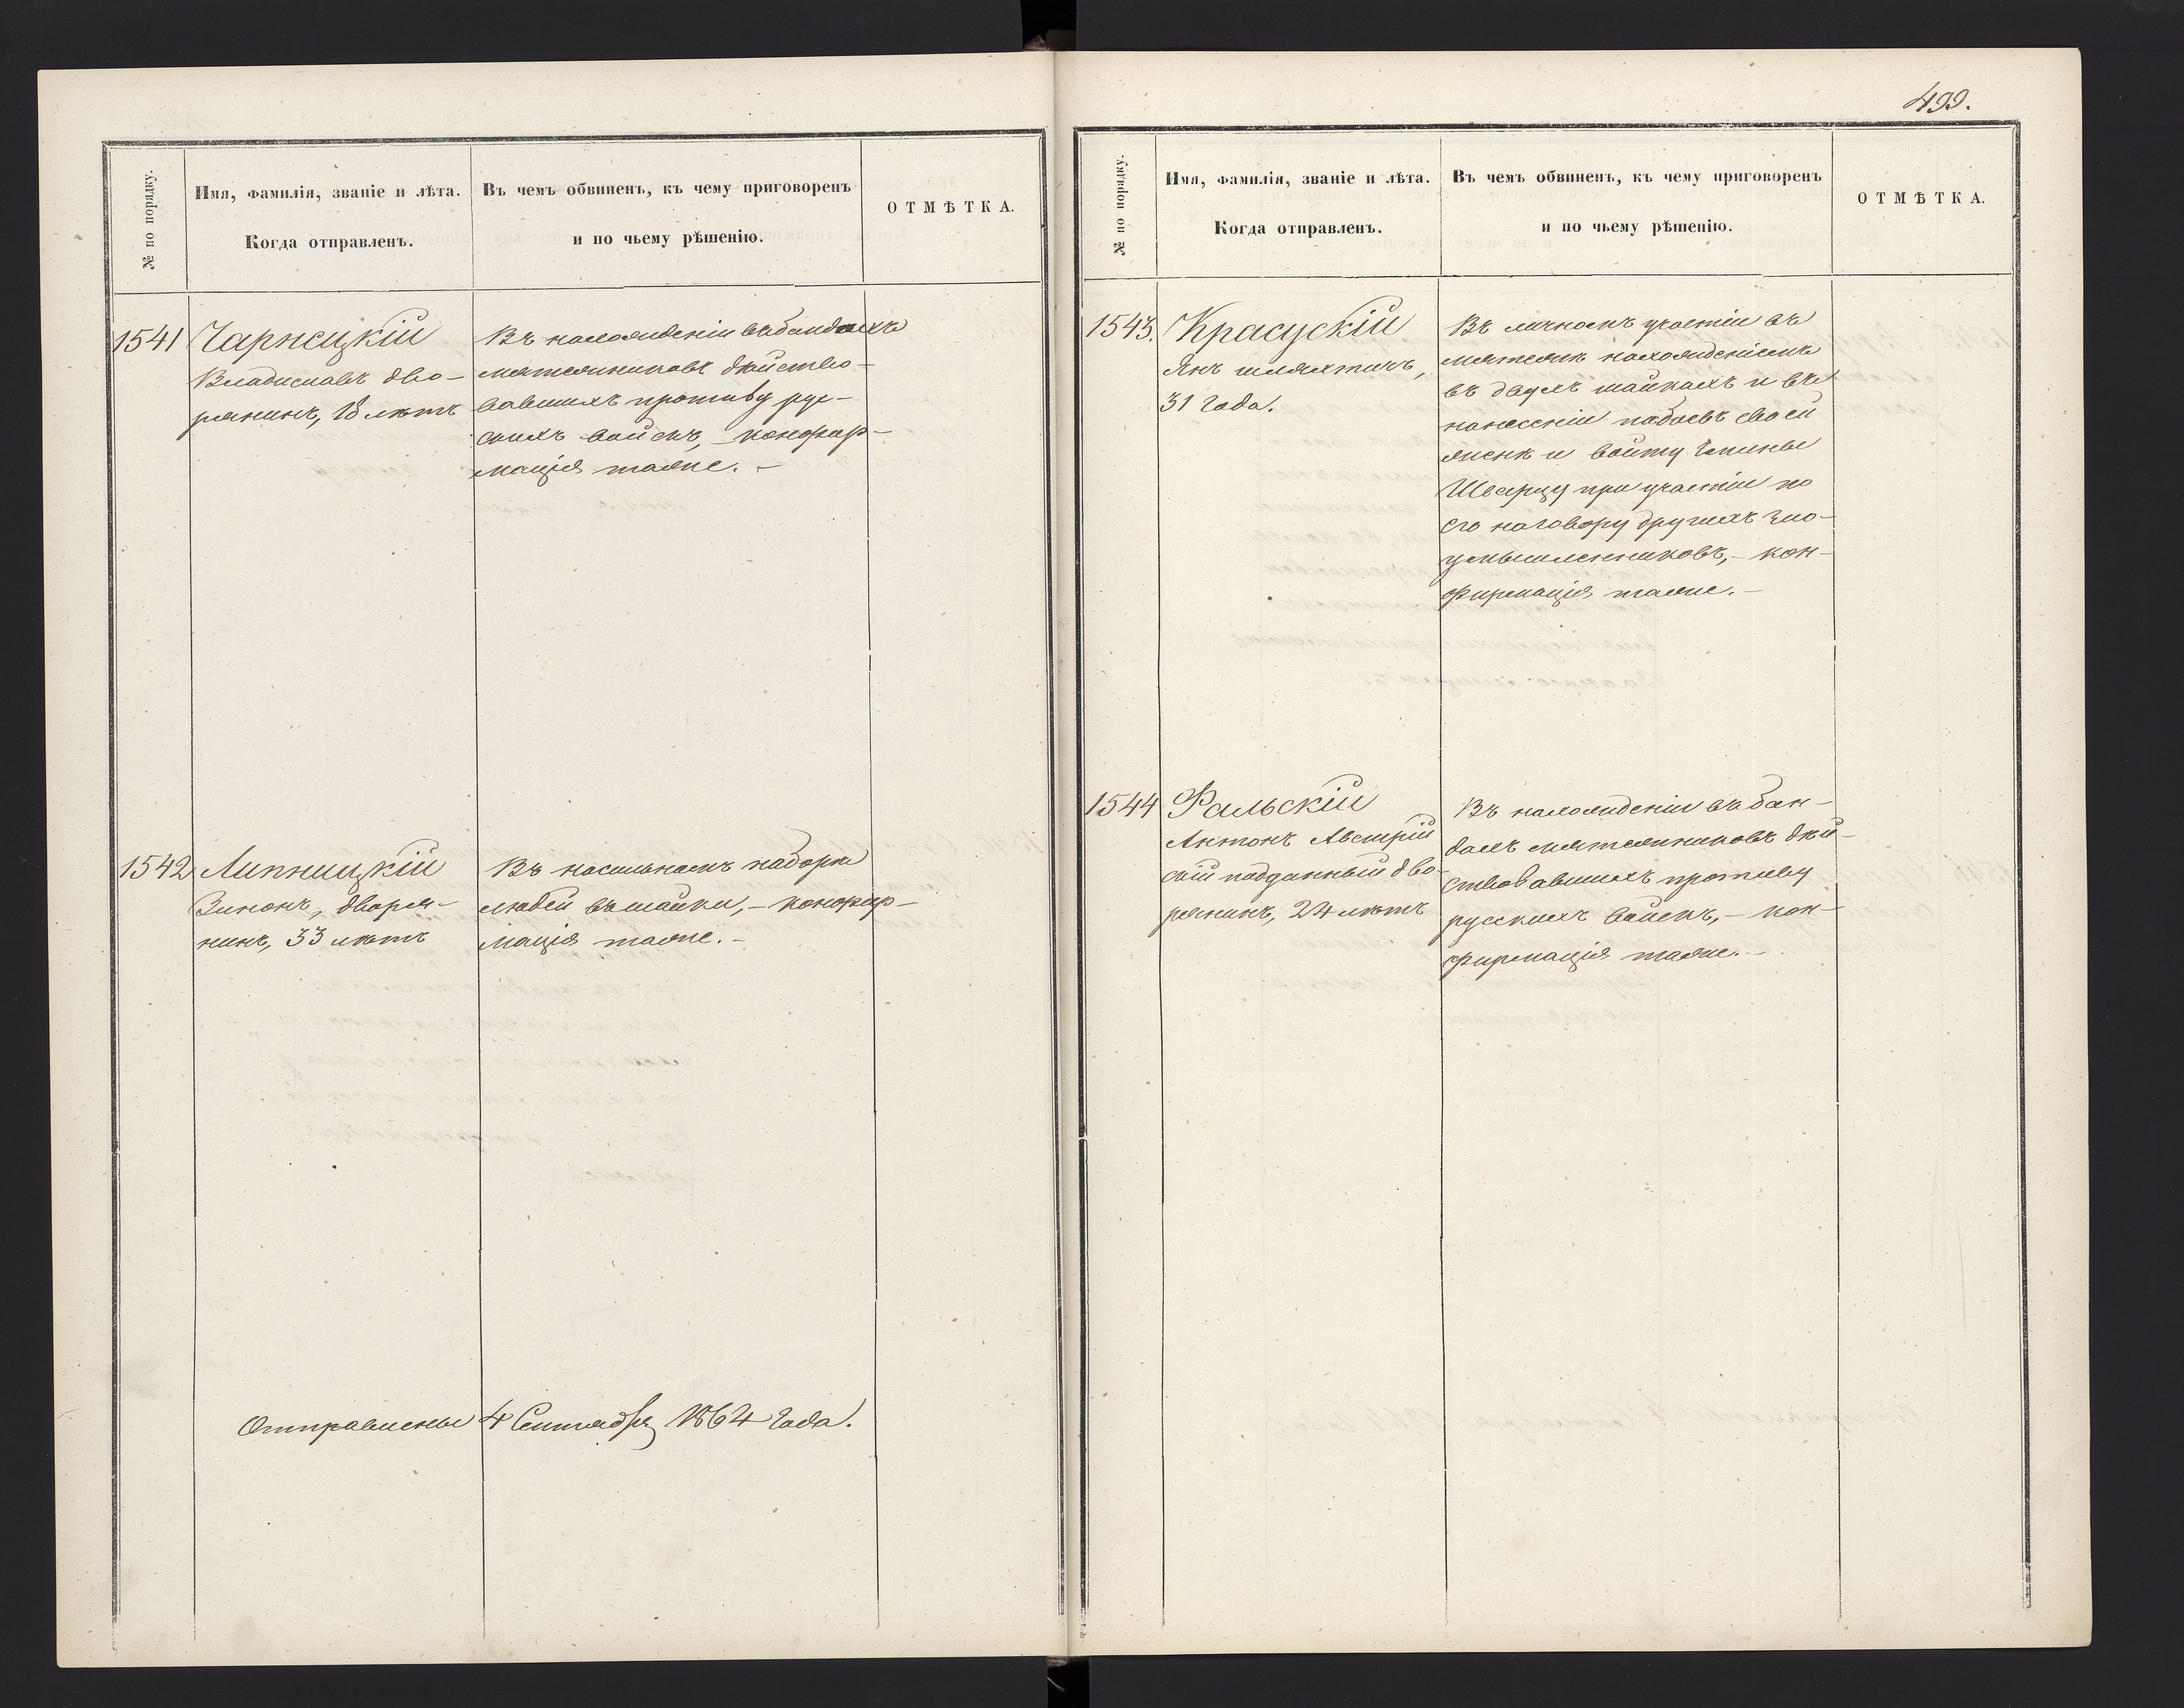 № по порядку.
Имя, фамилія, званіе и лѣта.
Когда отправленъ.
Въ чемъ обвиненъ, къ чему приговоренъ
и по чьему рѣшенію.
ОТМѢТКА.
1541
Чарнецкій
Владиславъ дво-
рянинъ, 18 лѣтъ
Въ нахожденіи въ бандахъ
мятежниковъ дѣйство-
вавшихъ противу рус-
скихъ войскъ, – конфир-
мація таже. –
1542
Липницкій
Зинонъ, дворя-
нинъ, 33 лѣтъ
Въ насильномъ наборѣ
людей въ шайки, – конфир-
мація таже. –
Отправлены 4 Сентября 1864 года.
499.
№ по порядку.
Имя, фамилія, званіе и лѣта.
Когда отправленъ.
Въ чемъ обвиненъ, къ чему приговоренъ
и по чьему рѣшенію.
ОТМѢТКА.
1543.
Красускій
Янъ шляхтичъ,
31 года.
Въ личномъ участіи въ
мятежѣ нахожденіемъ
въ двухъ шайкахъ и въ
нанесеніи побоевъ своей
женѣ и войту гмины
при участіи по
его наговору другихъ зло-
умышленниковъ, – кон-
фирмація таже. –
1544
Фальскій
Антонъ Австрій
скій подданный дво-
рянинъ, 24 лѣтъ
Въ нахожденіи въ бан-
дахъ мятежниковъ дѣй-
ствовавшихъ противу
русскихъ войскъ, – кон-
фирмація таже. –